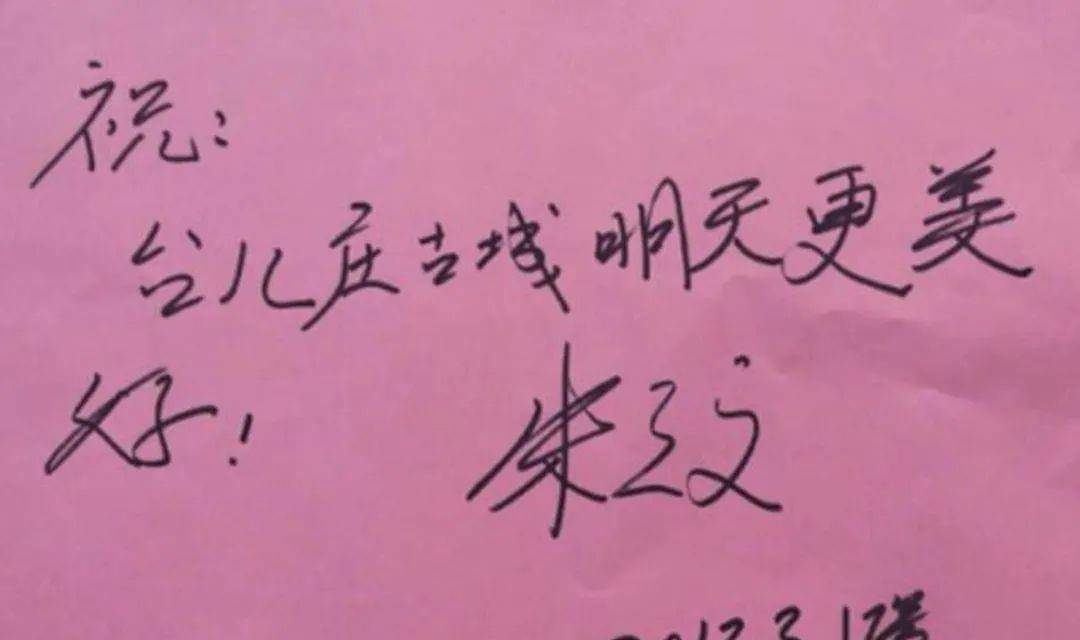 祝:
台儿庄古城明天更美
好!
朱之文